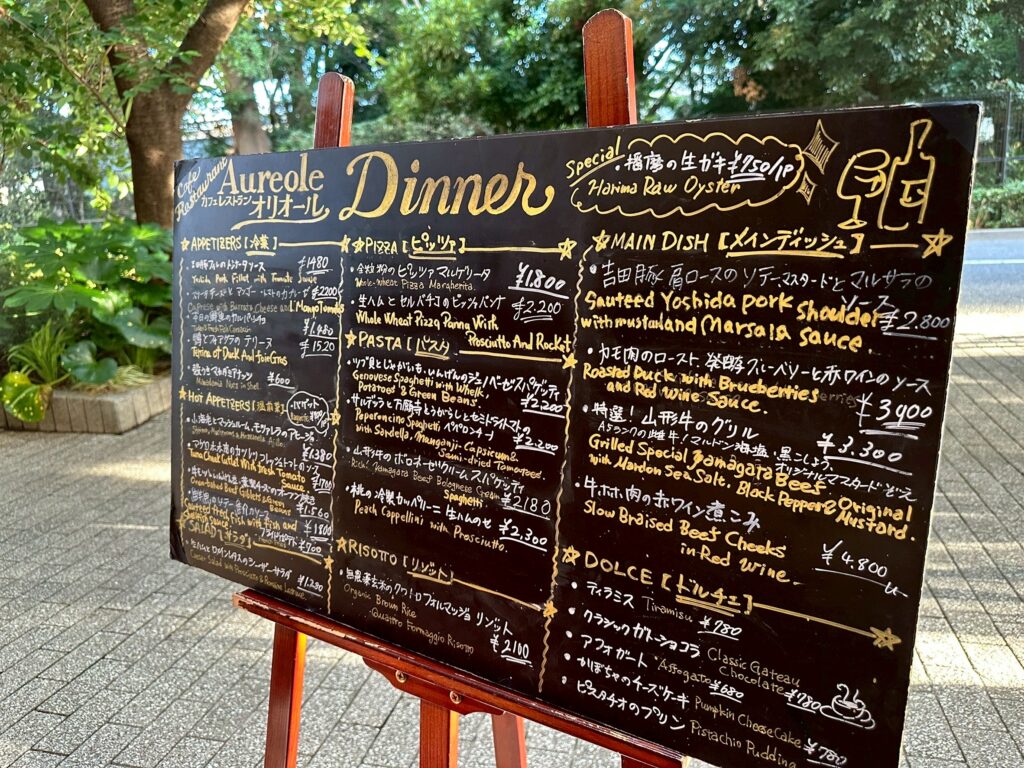 Cafe Restaurant
Aureole
カフェレストラン
オリオール
Dinner
Special
・播磨の生ガキ ¥750/1P
Harima Raw Oyster
APPETIZERS【冷菜】
¥1480
Pork Fillet with Tomato
¥2200
Caprese with Burrata Cheese and Mango Tomato
¥1,480
鴨とフォアグラのテリーヌ ¥1520
Terrine of Duck And Foie Gras
¥600
Macadamia Nuts in Shell
HOT APPETIZERS【温前菜】
・バゲット
¥1,380
Tuna Cheek Cutlet With Fresh Tomato Sauce
¥1700
¥1,560
Sauteed Fresh Fish with
¥1800
¥700
SALAD【サラダ】
¥1,280
PIZZA【ピッツァ】
・全粒粉のピッツァ マルゲリータ
Whole-wheat Pizza Margherita.
¥1,800
・生ハムとセルバチコのピッツァパンナ
¥2,200
Whole Wheat Pizza Panna With
Prosciutto And Rocket
PASTA【パスタ】
・ツブ貝とじゃがいも、いんげんのジェノベーゼスパゲッティ
Genovese Spaghetti with Whelk,
Potatoes & Green Beans
¥2,200
・サルデッラと万願寺とうがらしとセミドライトマトの
ペペロンチーノ
Peperoncino Spaghetti
¥2,200
with Sardella, Manganji-Capsicum &
Semi-dried Tomatoes.
・山形牛のボロネーゼクリームスパゲッティ
Rich! Yamagata Beef Bolognese Cream
Spaghetti
¥2180
・桃の冷製カッペリーニ 生ハムのせ
¥2,300
Peach Cappellini with Prosciutto.
RISOTTO【リゾット】
クワトロフォルマッジョ リゾット
Organic Brown Rice
Quattro Formaggio Risotto
¥2100
MAIN DISH【メインディッシュ】
・吉田豚 肩ロースのソテーマスタードとマルサラの
ソース
Sauteed Yoshida pork shoulder
¥2.800
with mustard and Marsala sauce
・カモ肉のロースト 発酵ブルーベリーと赤ワインのソース
Roasted Duck with Brueberries
and Red wine sauce.
¥3900
・特選！山形牛のグリル
¥3.300
A5ランクの雌牛！マルドン海塩、黒こしょう、
オリジナルマスタードそえ
Grilled Special Yamagata Beef
with Mardon Sea Salt, Black Pepper & Original
Mustard.
・牛ホホ肉の赤ワイン煮こみ
¥4.800
Slow Braised Beef Cheeks
in Red Wine.
DOLCE【ドルチェ】
・ティラミス Tiramisu ¥780
・クラシックガトーショコラ Classic Gateau
Chocolate ¥780
・アフォガート Affogato ¥680
・かぼちゃのチーズケーキ Pumpkin Cheese Cake
¥780
・ピスタチオのプリン Pistachio Pudding